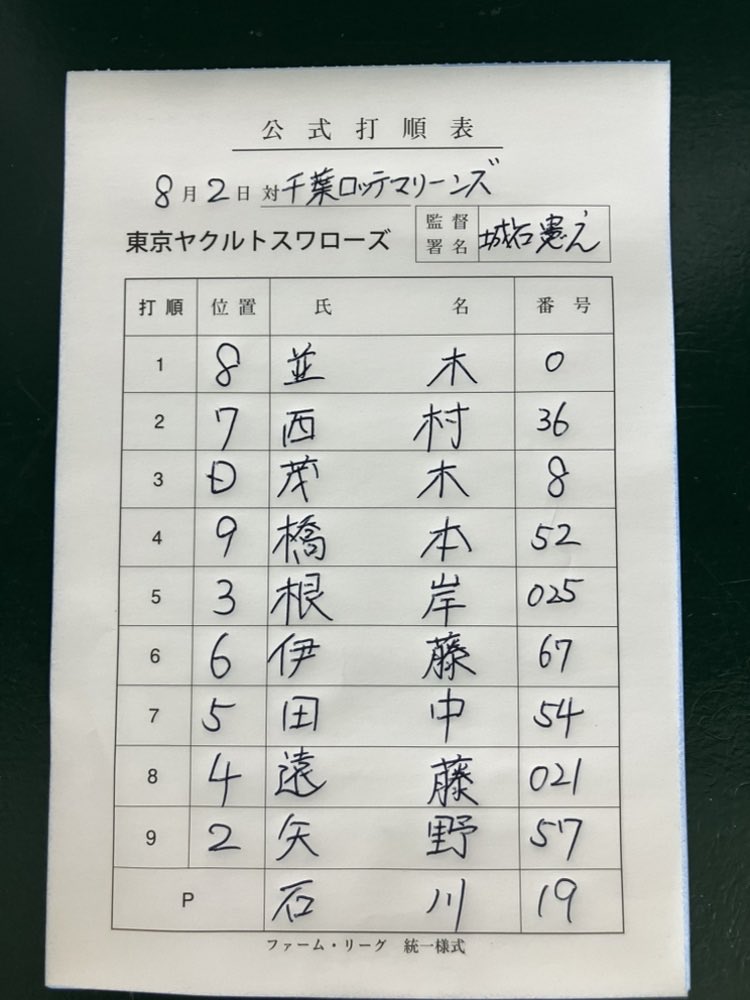 公式打順表
8月2日 対 千葉ロッテマリーンズ
東京ヤクルトスワローズ 監督署名 城石憲之
打順 位置 氏名 番号
1 8 並木 0
2 7 西村 36
3 D 茂木 8
4 9 橋本 52
5 3 根岸 025
6 6 伊藤 67
7 5 田中 54
8 4 遠藤 021
9 2 矢野 57
P 石川 19
ファーム・リーグ 統一様式